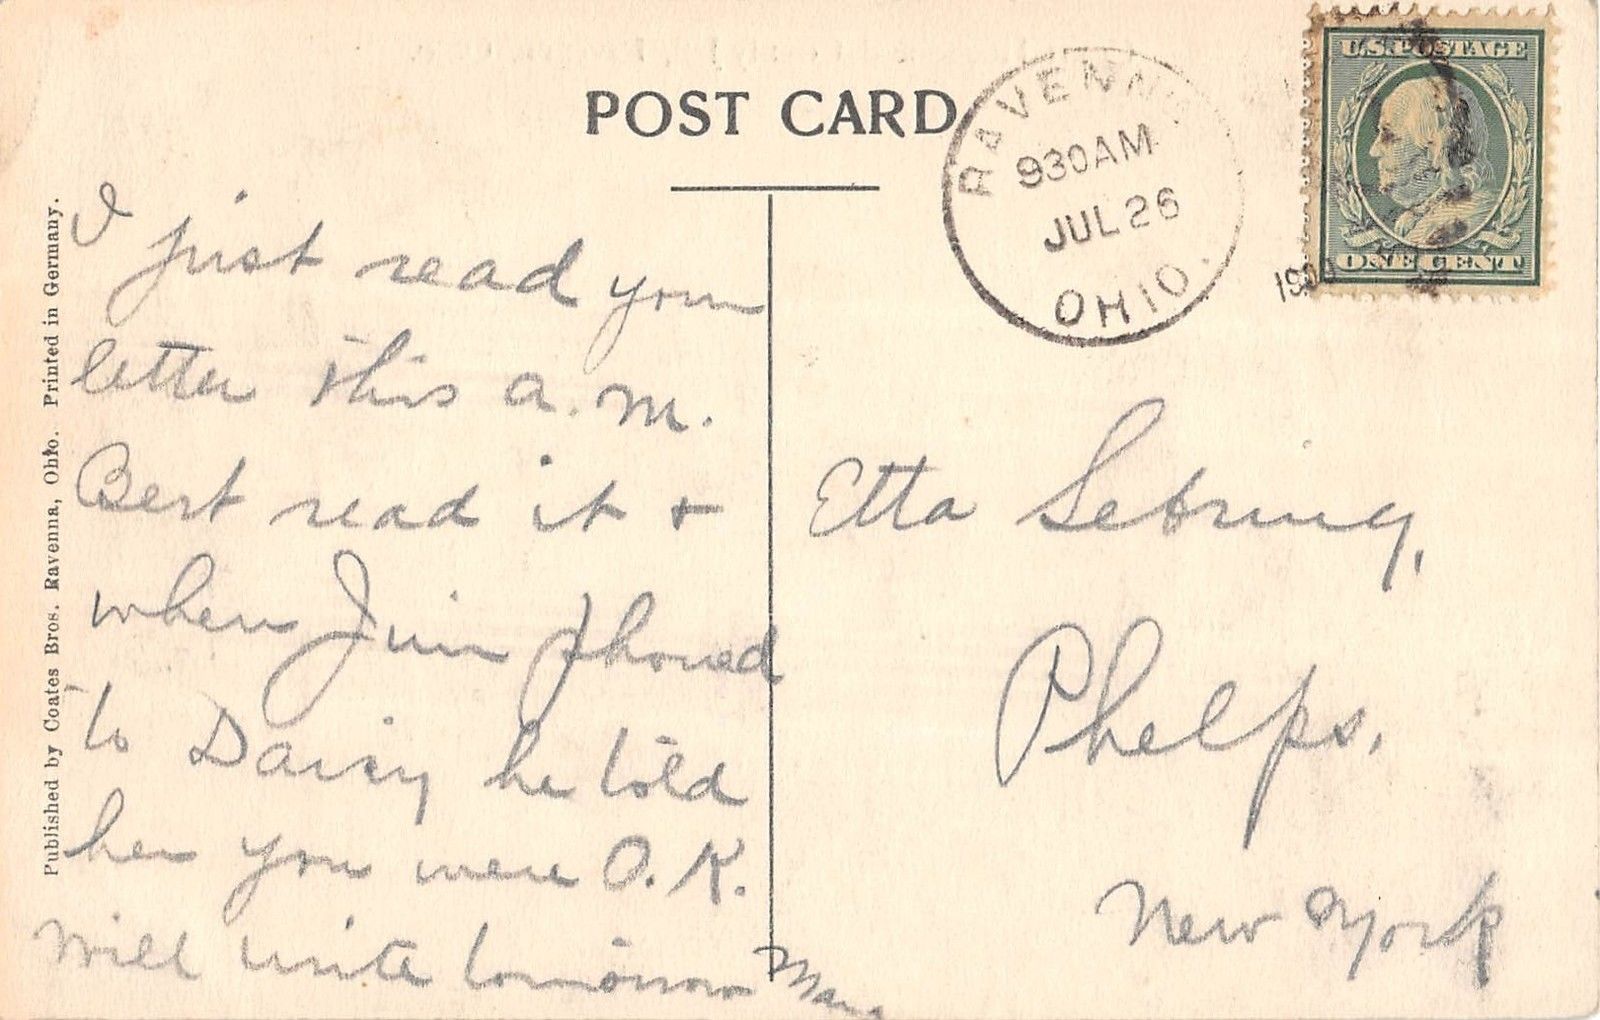 POST CARD
RAVENNA
930AM
JUL 26
OHIO.
U.S. POSTAGE
ONE CENT
Published by Coates Bros. Ravenna, Ohio. Printed in Germany.
I just read your
letter this a.m.
Bert read it +
when Jim phoned
to Daisy he told
her you were O.K.
Will write tomorrow
Etta Sebring,
Phelps,
New York